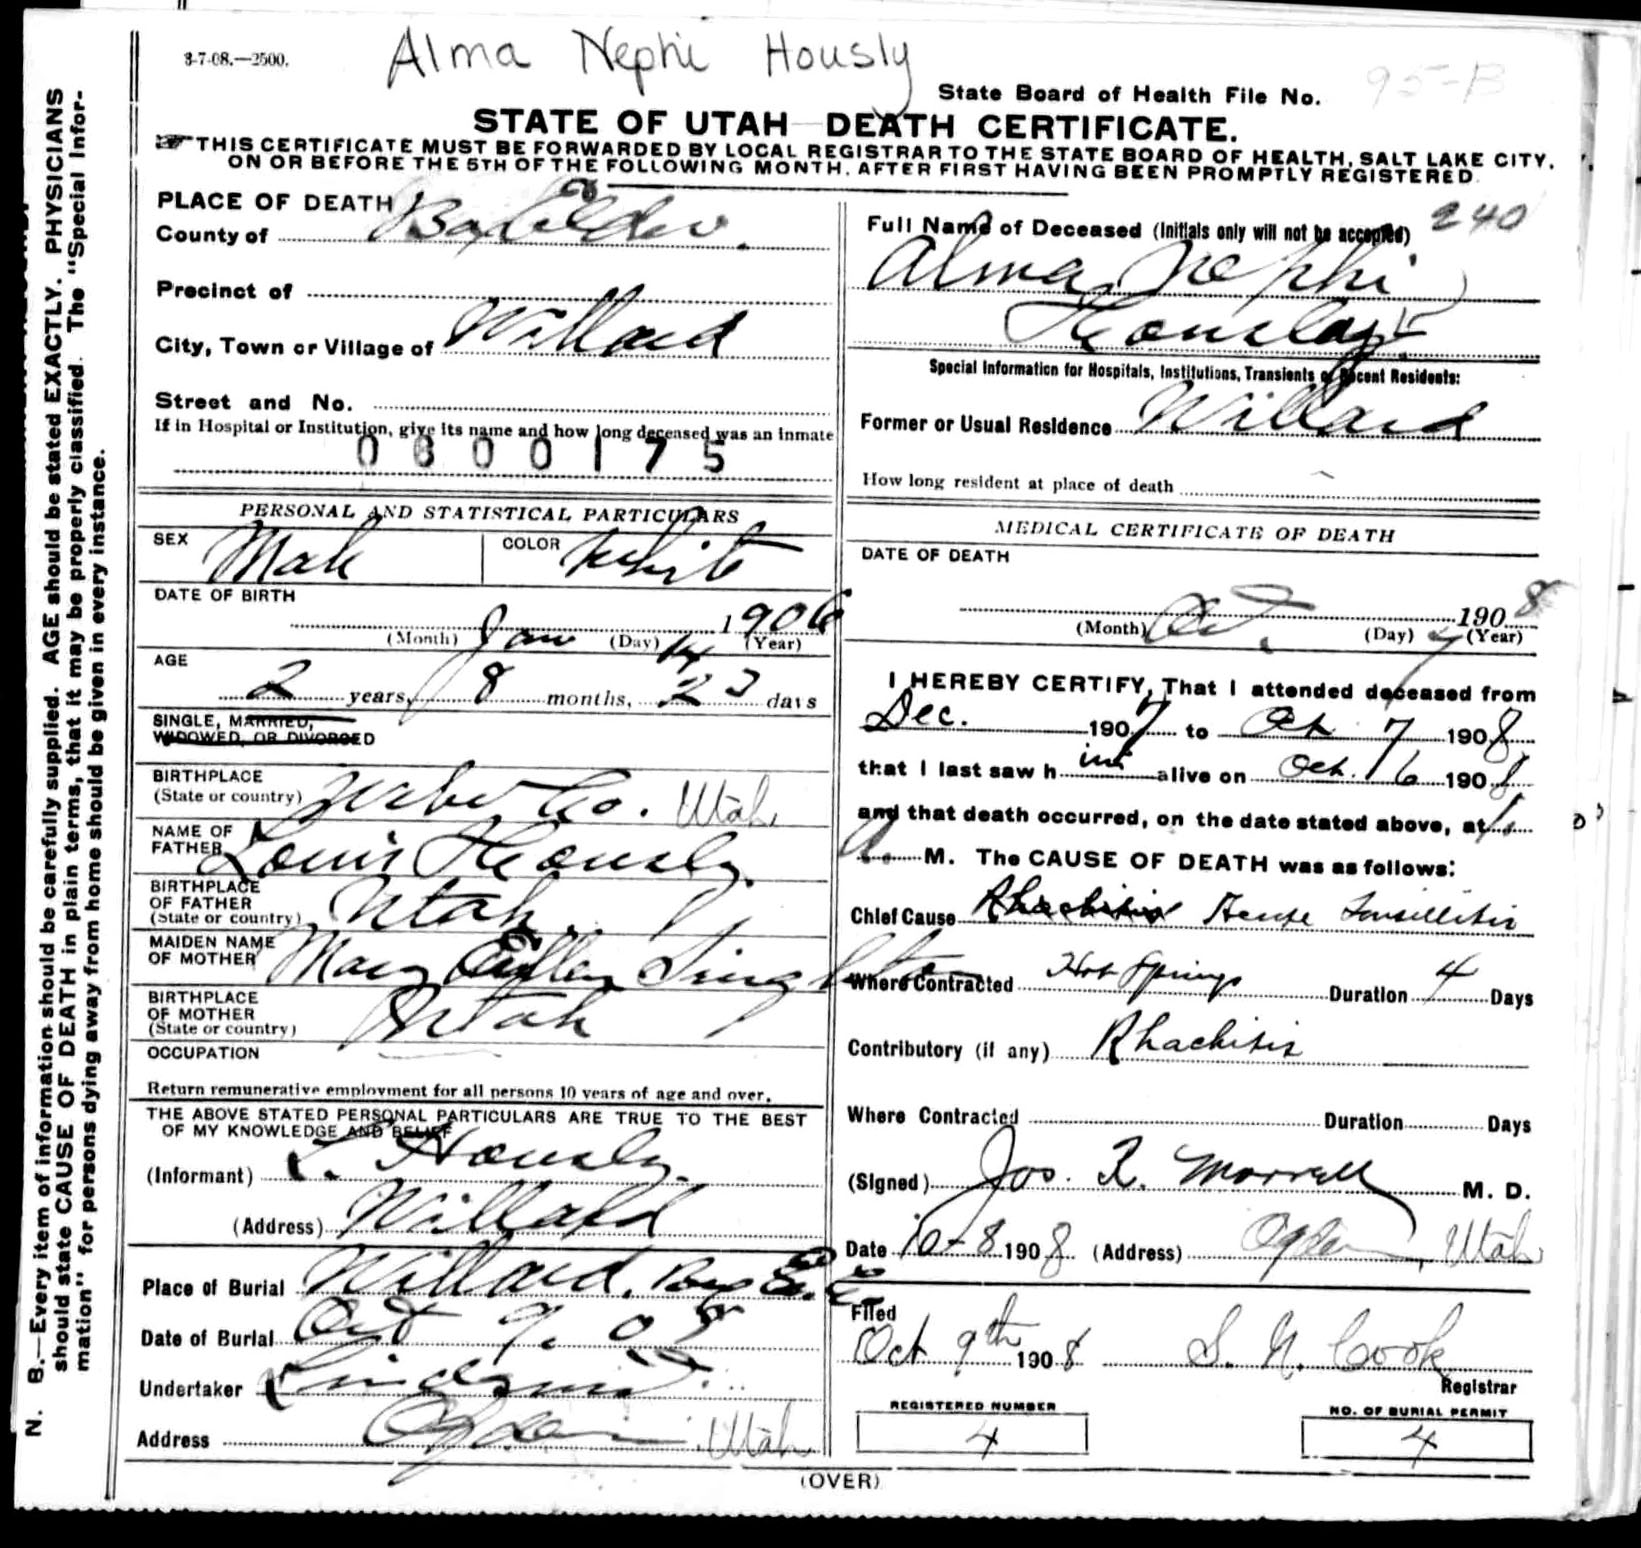 3-7-08.—2500.
Alma Nephi Hously
State Board of Health File No. 95-B
STATE OF UTAH DEATH CERTIFICATE.
THIS CERTIFICATE MUST BE FORWARDED BY LOCAL REGISTRAR TO THE STATE BOARD OF HEALTH, SALT LAKE CITY,
ON OR BEFORE THE 5TH OF THE FOLLOWING MONTH, AFTER FIRST HAVING BEEN PROMPTLY REGISTERED.
N. B.—Every item of information should be carefully supplied. AGE should be stated EXACTLY. PHYSICIANS
should state CAUSE OF DEATH in plain terms, that it may be properly classified. The "Special Infor-
mation" for persons dying away from home should be given in every instance.
PLACE OF DEATH
County of Box Elder.
Precinct of
City, Town or Village of Willard
Street and No.
If in Hospital or Institution, give its name and how long deceased was an inmate
0800175
PERSONAL AND STATISTICAL PARTICULARS
SEX Male COLOR White
DATE OF BIRTH
1906
(Month) Jan (Day) 14 (Year)
AGE
2 years, 8 months, 23 days
SINGLE, MARRIED,
WIDOWED, OR DIVORCED
BIRTHPLACE
(State or country) Weber Co. Utah
NAME OF
FATHER Louis Hously
BIRTHPLACE
OF FATHER
(State or country) Utah.
MAIDEN NAME
OF MOTHER Mary Ellen Singleton
BIRTHPLACE
OF MOTHER
(State or country) Utah
OCCUPATION
Return remunerative employment for all persons 10 years of age and over.
THE ABOVE STATED PERSONAL PARTICULARS ARE TRUE TO THE BEST
OF MY KNOWLEDGE AND BELIEF
(Informant) L. Hously
(Address) Willard
Place of Burial Willard, Box E. Co.
Date of Burial Oct 9. 08
Undertaker Lindquist
Address Ogden Utah
Full Name of Deceased (Initials only will not be accepted) 240
Alma Nephi
Housley
Special Information for Hospitals, Institutions, Transients or Recent Residents:
Former or Usual Residence Willard
How long resident at place of death
MEDICAL CERTIFICATE OF DEATH
DATE OF DEATH
1908
(Month) Oct. (Day) 7 (Year)
I HEREBY CERTIFY, That I attended deceased from
Dec. 1907 to Oct 7 1908
that I last saw him alive on Oct. 6 1908
and that death occurred, on the date stated above, at
A. M. The CAUSE OF DEATH was as follows:
Chief Cause Rhachitis Acute Tonsillitis
Where Contracted Hot Springs Duration 4 Days
Contributory (if any) Rhachitis
Where Contracted Duration Days
(Signed) Jos. R. Morrell M. D.
Date 10-8 1908 (Address) Ogden, Utah
Filed
Oct 9th 1908 S. N. Cook
Registrar
REGISTERED NUMBER
4
NO. OF BURIAL PERMIT
4
(OVER)